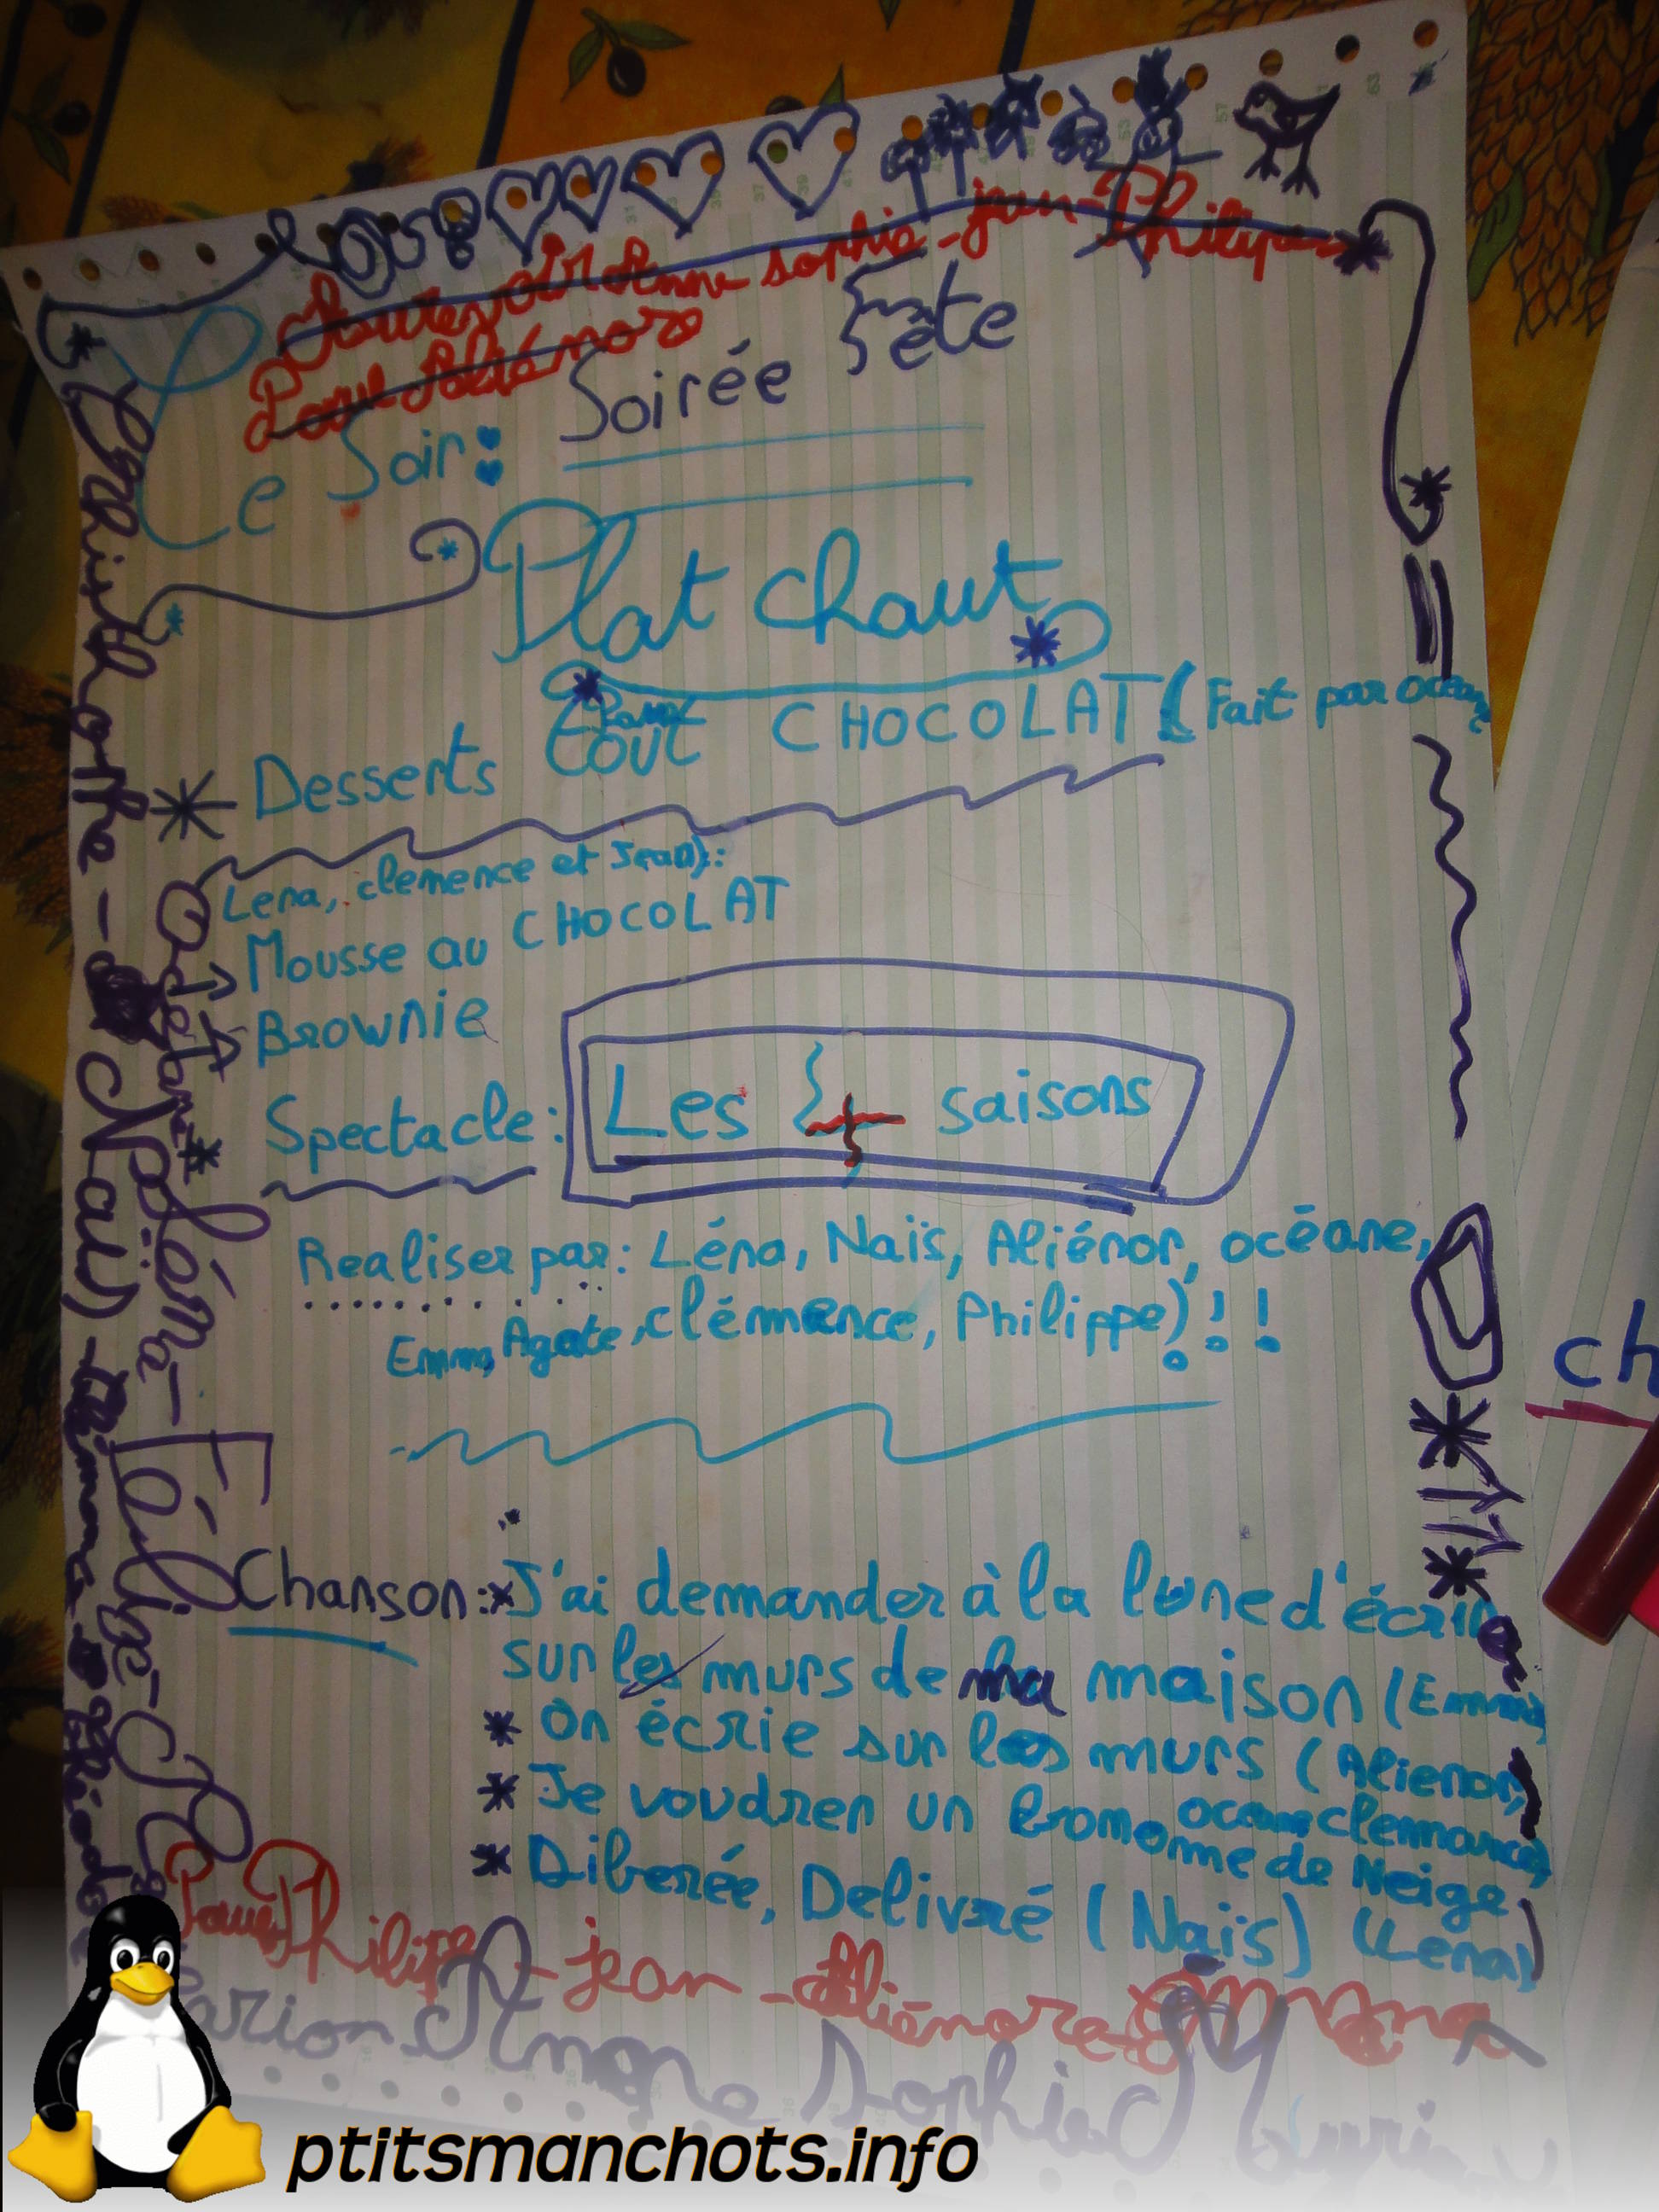 Anne sophie - jean-Philippe
Ce Soir: Soirée Fête
Plat chaut
Desserts tout CHOCOLAT (Fait par océane
Lena, clemence et Jean):
Mousse au CHOCOLAT
BROWNIE
Spectacle: Les 4 saisons
Realiser par: Léna, Naïs, Aliénor, océane,
Emma, Agate, clémence, Philippe)!!!
Chanson: J'ai demander à la lune d'écrire
sur les murs de ma maison (Emma)
* On écrie sur les murs (Alienor,
océane clemance)
* Je voudrer un bomomme de Neige
(Lena)
* Liberée, Delivré (Naïs)
Philippe - jean - Aliénore - Emma
Marion Anne Sophie
ch
ptitsmanchots.info